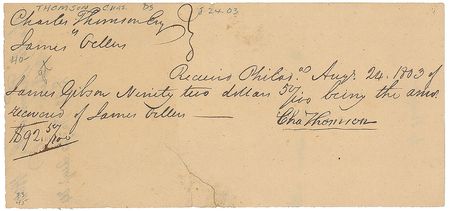 THOMSON, CHAS. DS
8 24.03
Charles Thomson Esq
James Vellers
Received Philad.a Augt. 24. 1803 of
James Gibson Ninety two dollars 50/100 being the amo
recovered of James Vellers —
$92.50/100
Cha Thomson